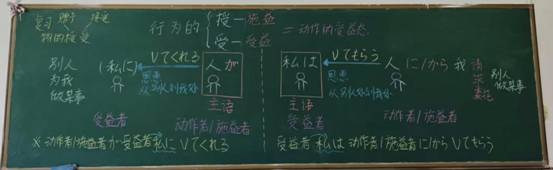 复习
物的接受
行为的 授一施益
受一受益
= 动作的受益态
别人
为我
做某事
(私に)
Vてくれる
人が
恩惠
从别人到我处
主语
受益者
动作者/施益者
※ 动作者/施益者が受益者私に Vてくれる
私は
Vてもらう
人に/から
我请
求
别人
做某事
恩惠
从别人到我处
主语
受益者
动作者/施益者
受益者 私は 动作者/施益者に/から Vてもらう